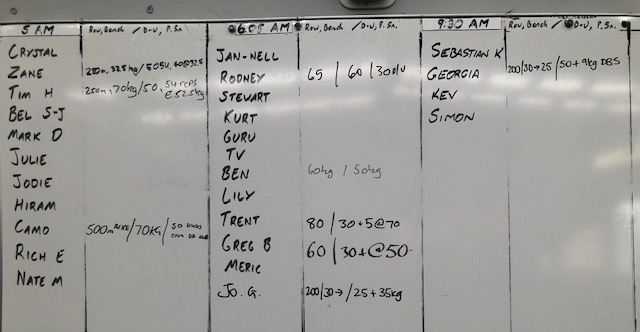 5 AM Row, Bench / D-U, P. Sn.
CRYSTAL
ZANE
TIM H 250m, 70kg / 50, 54 reps @ 52.5kg
BEL S-J
MARK D
JULIE
JODIE
HIRAM
CAMO 500m BIKE / 70KG / 50
RICH E
NATE M
6:05 AM Row, Bench / D-U, P. Sn.
JAN-NELL
RODNEY 65 / 60 / 30 D/U
STEWART
KURT
GURU
TV
BEN 60kg / 50kg
LILY
TRENT 80 / 30+5@70
GREG B 60 / 30+@50
MERIC
JO. G. 200/30→ / 25 + 35kg
9:30 AM Row, Bench / D-U, P. Sn.
SEBASTIAN K
GEORGIA 200/30→25 / 50 + 9kg DBS
KEV
SIMON